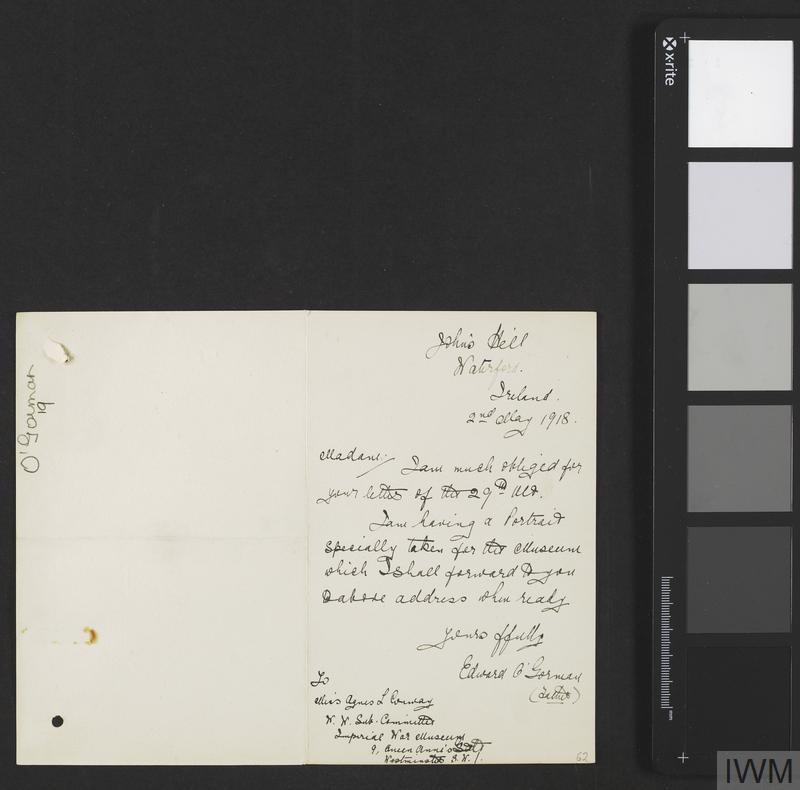 O'Gorman
19
John's Hill
Waterford.
Ireland.
2nd May 1918.
Madam:-
I am much obliged for
your letter of the 29th Ult.
I am having a Portrait
specially taken for the Museum
which I shall forward to you
to above address when ready
Yours ffully
Edward O'Gorman
(Father)
To
Miss Agnes L Conway
W. W. Sub-Committee
Imperial War Museum
9, Queen Anne's Gate
Westminster S.W.1.
62
x·rite
mm
IWM